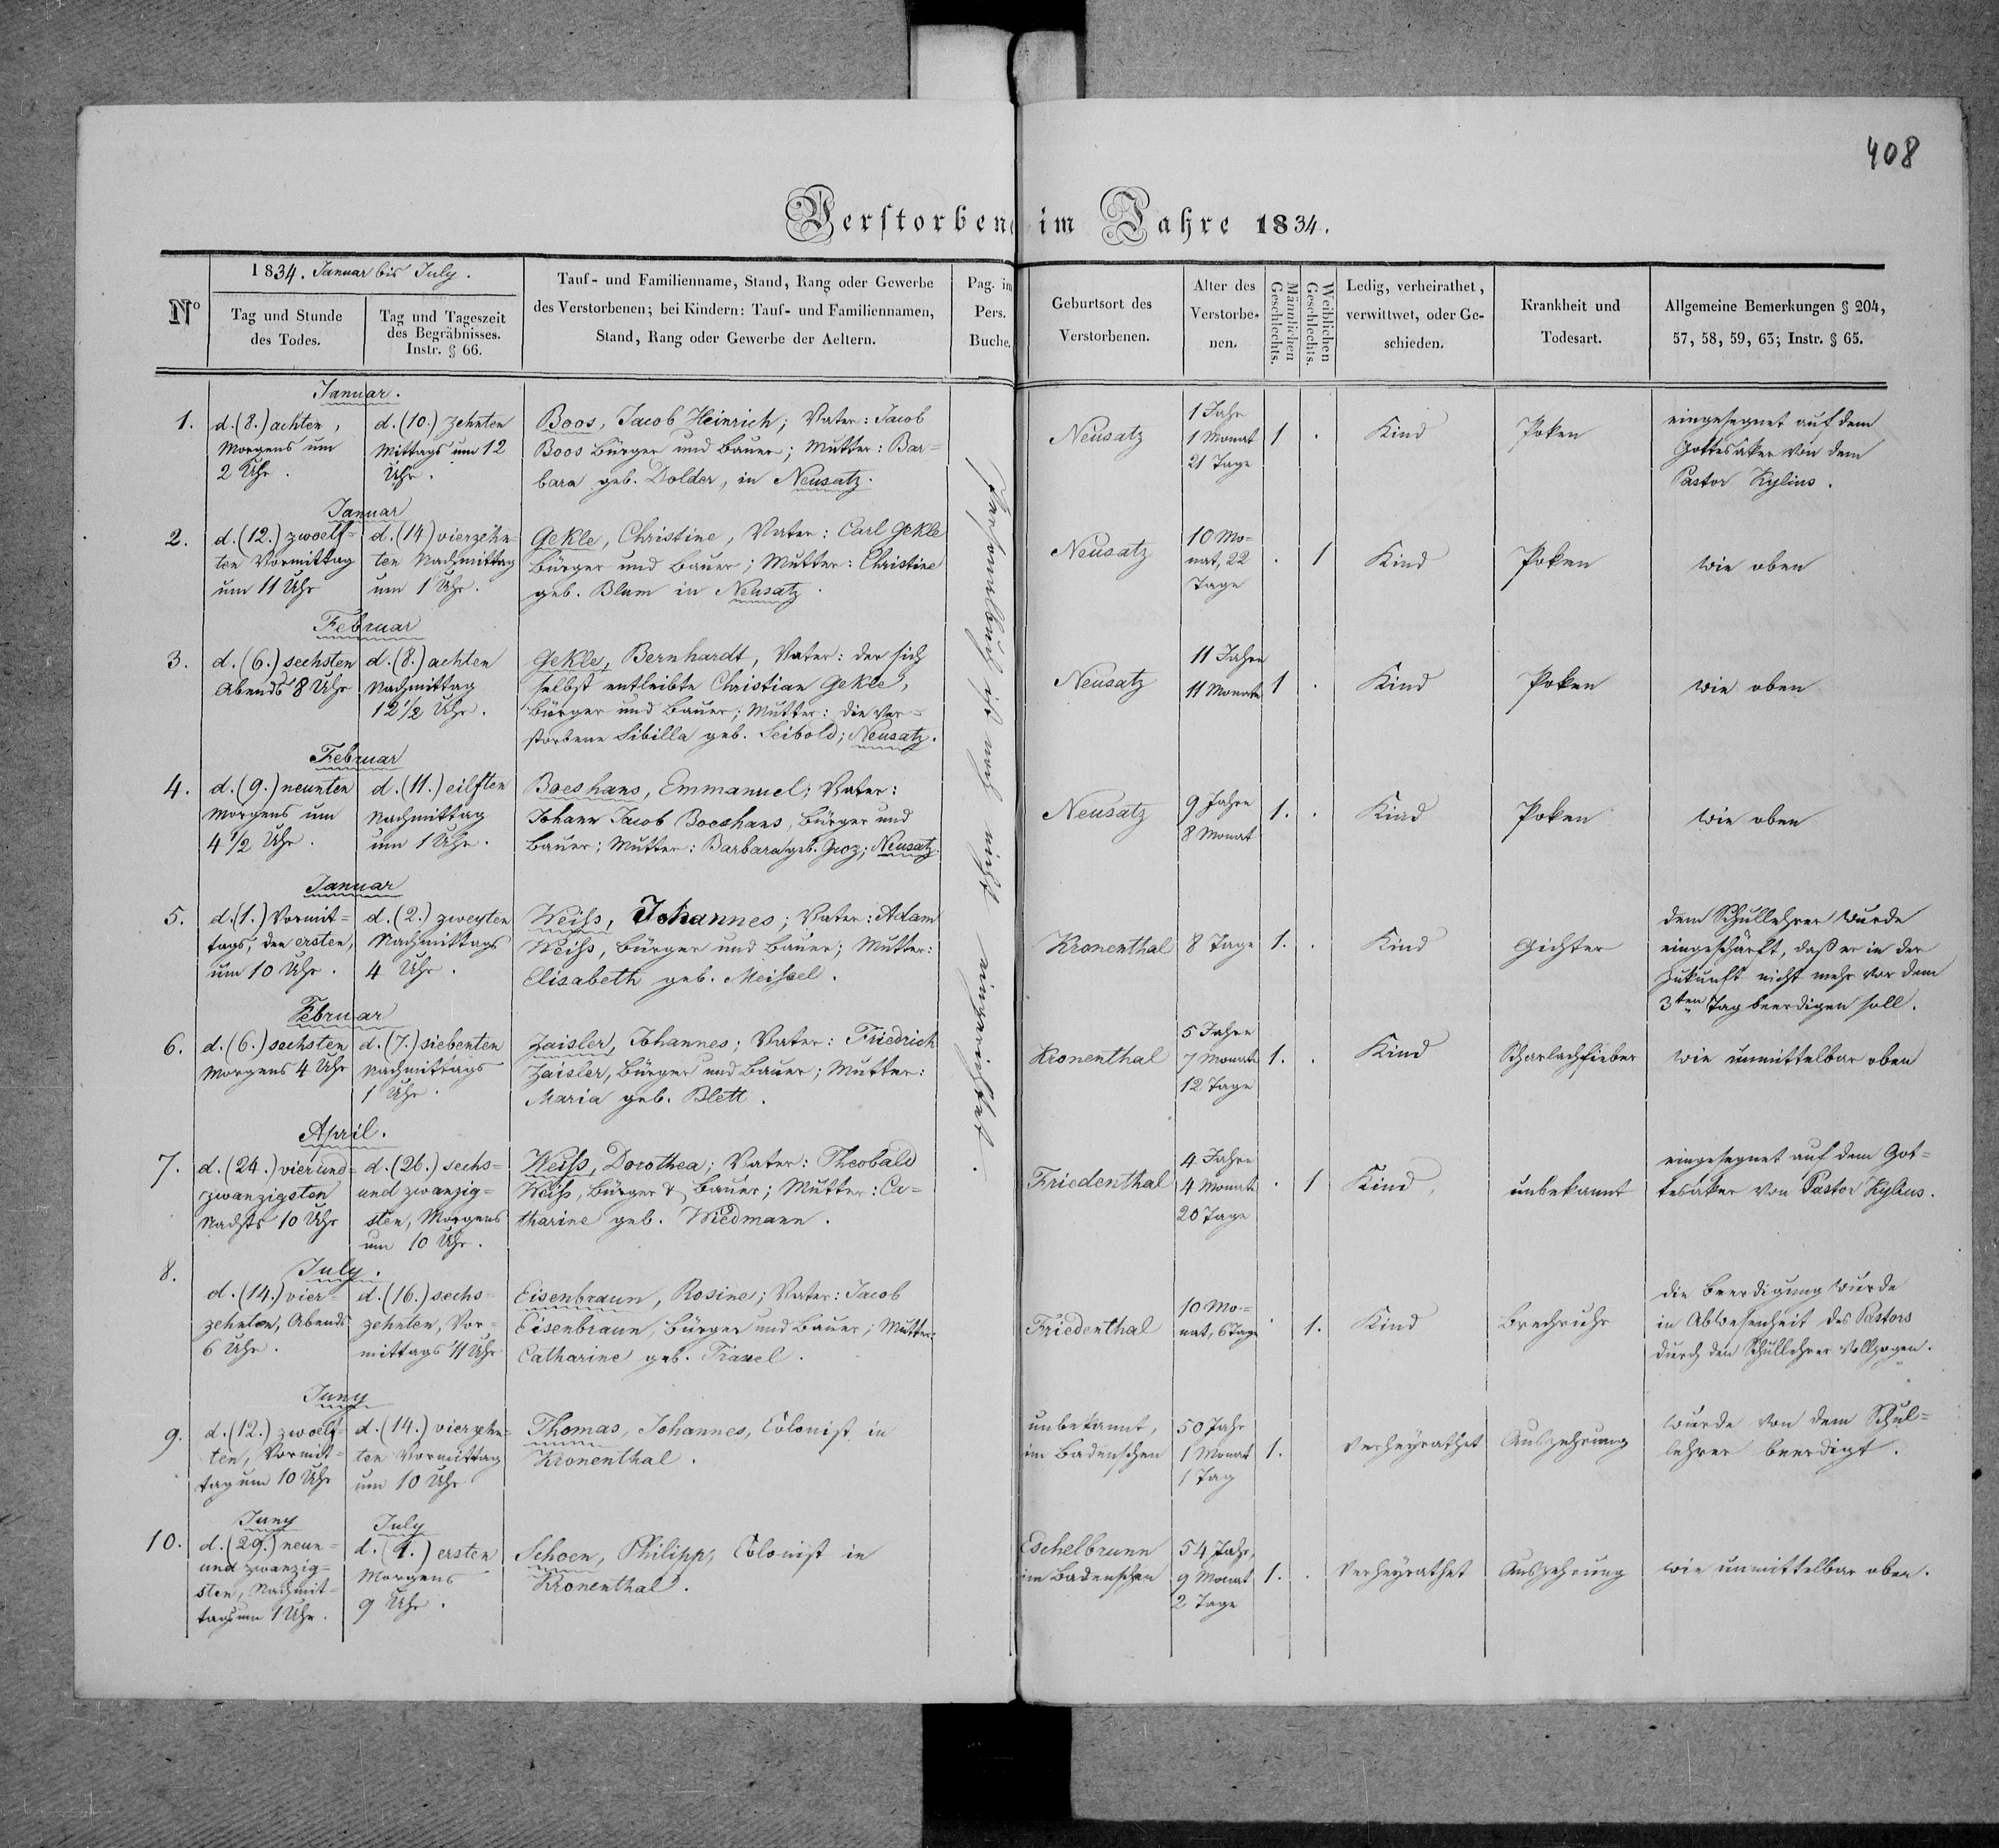 408
Verstorbene im Jahre 1834.
Nº
1834. Januar bis July.
Tag und Stunde
des Todes.
Tag und Tageszeit
des Begräbnisses.
Instr. § 66.
Tauf- und Familienname, Stand, Rang oder Gewerbe
des Verstorbenen; bei Kindern: Tauf- und Familiennamen,
Stand, Rang oder Gewerbe der Aeltern.
Pag. im
Pers.
Buche.
Geburtsort des
Verstorbenen.
Alter des
Verstorbe-
nen.
Männlichen
Geschlechts.
Weiblichen
Geschlechts.
Ledig, verheirathet,
verwittwet, oder Ge-
schieden.
Krankheit und
Todesart.
Allgemeine Bemerkungen § 204,
57, 58, 59, 63; Instr. § 65.
Personalbuch ist noch nicht eingerichtet.
Januar.
1.
d. (8.) achten,
Morgens um
2 Uhr.
d. (10.) zehnten
Mittags um 12
Uhr.
Boos, Jacob Heinrich; Vater: Jacob
Boos Bürger und Bauer; Mutter: Bar=
bara geb. Dolder, in Neusatz.
Neusatz
1 Jahr
1 Monat
21 Tage
1
.
Kind
Poken
eingesegnet auf dem
Gottesaker von dem
Pastor Kylius.
Januar
2.
d. (12.) zwoelf=
ten Vormittag
um 11 Uhr
d. (14) vierzehn=
ten Nachmittag
um 1 Uhr.
Gekle, Christine, Vater: Carl Gekle
Bürger und Bauer; Mutter: Christine
geb. Blum in Neusatz.
Neusatz
10 Mo=
nat, 22
Tage
.
1
Kind
Poken
wie oben
Februar
3.
d. (6.) sechsten
Abends 8 Uhr
d. (8.) achten
Nachmittag
12 1/2 Uhr.
Gekle, Bernhardt, Vater: der sich
selbst entleibte Christian Gekle,
Bürger und Bauer; Mutter: die ver=
storbene Sibilla geb. Seibold; Neusatz.
Neusatz
11 Jahre
11 Monate
1
.
Kind
Poken
wie oben
Februar
4.
d. (9.) neunten
Morgens um
4 1/2 Uhr.
d. (11.) eilften
Nachmittag
um 1 Uhr.
Boeshans, Emmanuel; Vater:
Johann Jacob Boeshans, Bürger und
Bauer; Mutter: Barbara geb. Groz; Neusatz.
Neusatz
9 Jahre
8 Monat
1.
.
Kind
Poken
wie oben
Januar
5.
d. (1.) Vormit=
tags, den ersten,
um 10 Uhr.
d. (2.) zweyten
Nachmittags
4 Uhr.
Weiß, Johannes; Vater: Adam
Weiß, Bürger und Bauer; Mutter:
Elisabeth geb. Meißel.
Kronenthal
8 Tage
1.
.
Kind
Gichter
dem Schullehrer wurde
eingeschärft, daß er in der
Zukunft nicht mehr vor dem
3ten Tag beerdigen soll.
Februar
6.
d. (6.) sechsten
Morgens 4 Uhr
d. (7.) siebenten
Nachmittags
1 Uhr.
Zaisler, Johannes; Vater: Friedrich
Zaisler, Bürger und Bauer; Mutter:
Maria geb. Blett.
Kronenthal
5 Jahre
7 Monate
12 Tage
1.
.
Kind
Scharlachfieber
wie unmittelbar oben
April.
7.
d. (24.) vierund=
zwanzigsten
Nachts 10 Uhr
d. (26.) sechs=
und zwanzig=
sten, Morgens
um 10 Uhr.
Weiß, Dorothea; Vater: Theobald
Weiß, Bürger & Bauer; Mutter: Ca=
tharine geb. Wiedmann.
Friedenthal
4 Jahre
4 Monate
20 Tage
.
1
Kind,
unbekannt
eingesegnet auf dem Got=
tesaker von Pastor Kylius.
8.
July.
d. (14.) vier=
zehnten, Abends
6 Uhr.
d. (16.) sechs=
zehnten, Vor=
mittags 11 Uhr
Eisenbraun, Rosine; Vater: Jacob
Eisenbraun, Bürger und Bauer; Mutter:
Catharine geb.
Friedenthal
10 Mo=
nat, 6 Tage
.
1.
Kind
Brechruhr
die Beerdigung wurde
in Abwesenheit des Pastors
durch den Schullehrer vollzogen.
Juny
9.
d. (12.) zwoelf=
ten, Vormit=
tag um 10 Uhr
d. (14.) vierzehn=
ten Vormittag
um 10 Uhr
Thomas, Johannes, Colonist in
Kronenthal.
unbekannt,
im Badenschen
50 Jahr
1 Monat
1 Tag
1.
verheyrathet
Auszehrung
wurde von dem Schul=
lehrer beerdigt.
Juny
July
10.
d. (29.) neun=
und zwanzig=
sten, Nachmit=
tags um 1 Uhr.
d. (1.) ersten
Morgens
9 Uhr.
Schoen, Philipp, Colonist in
Kronenthal.
Eschelbrunn
im Badenschen
54 Jahr,
9 Monat
2 Tage
1.
.
verheyrathet
Auszehrung
wie unmittelbar oben.